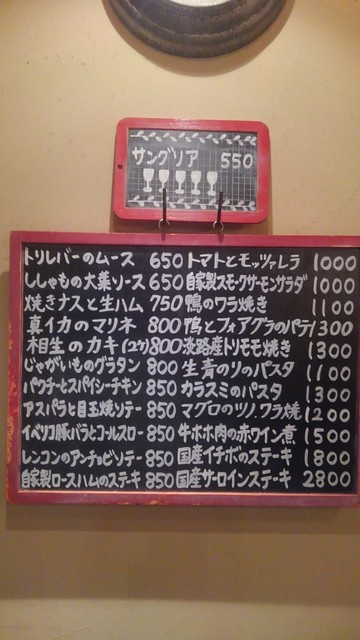 サングリア 550
トリレバーのムース 650 トマトとモッツァレラ 1000
ししゃもの大葉ソース 650 自家製スモークサーモンサラダ 1000
焼きナスと生ハム 750 鴨のワラ焼き 1100
真イカのマリネ 800 鴨とフォアグラのパテ 1300
相生のカキ(2ケ) 800 淡路産トリモモ焼き 1300
じゃがいものグラタン 800 生青のりのパスタ 1100
パクチーとスパイシーチキン 850 カラスミのパスタ 1300
アスパラと目玉焼ソテー 850 マグロのツノワラ焼 1200
イベリコ豚バラとコールスロー 850 牛ホホ肉の赤ワイン煮 1500
レンコンのアンチョビソテー 850 国産イチボのステーキ 1800
自家製ロースハムのステーキ 850 国産サーロインステーキ 2800